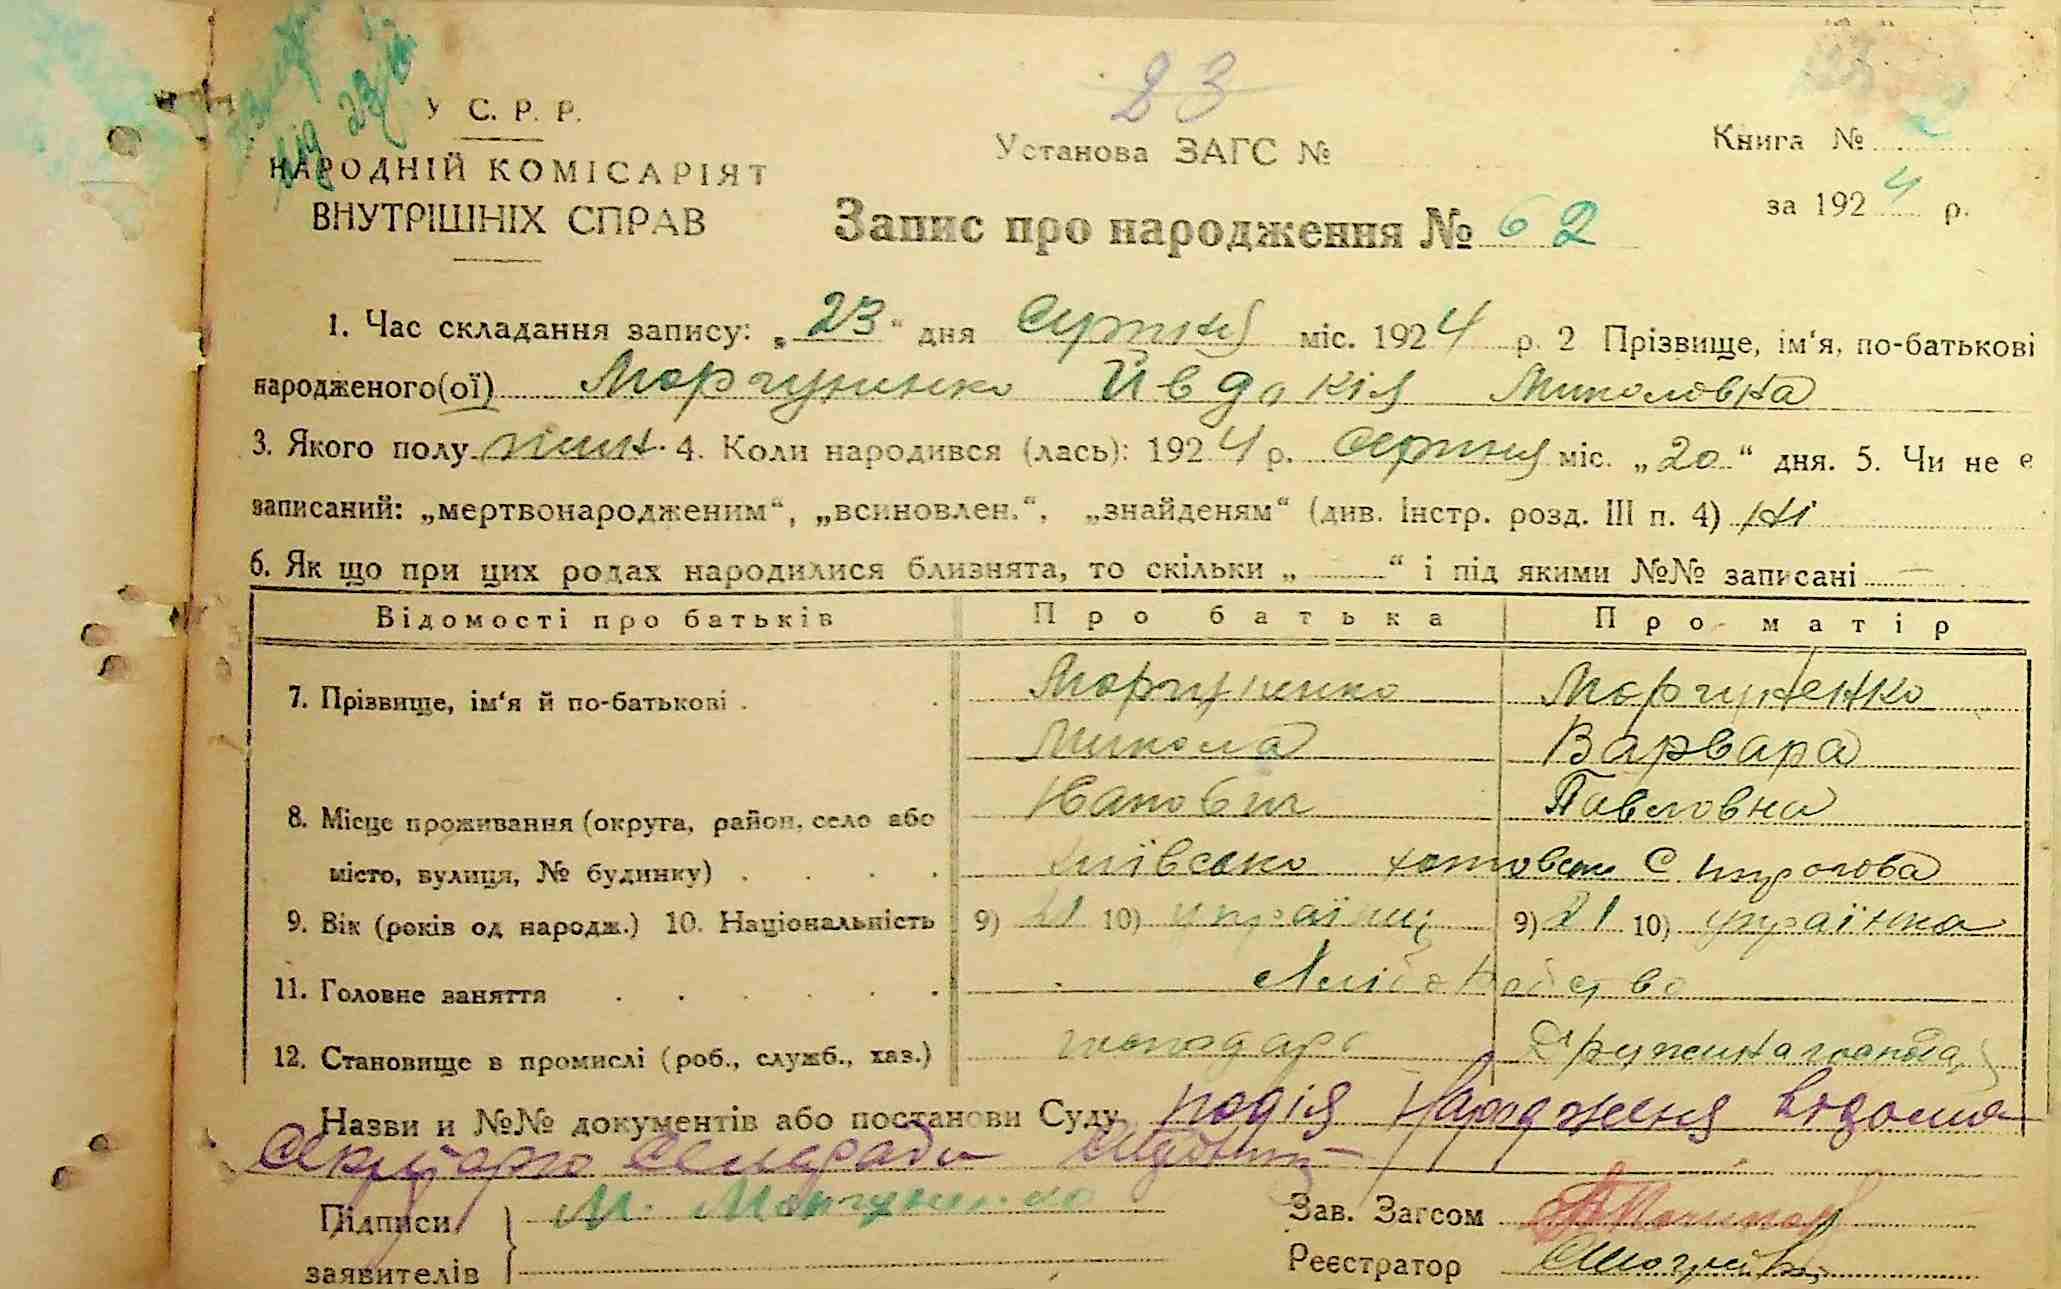 23
У С. Р. Р.
НАРОДНІЙ КОМІСАРІЯТ
ВНУТРІШНІХ СПРАВ
Установа ЗАГС №
Книга №
за 1924 р.
Запис про народження № 62
1. Час складання запису: „23“ дня Серпня міс. 1924 р. 2 Прізвище, ім'я, по-батькові
народженого(ої) Моргуненко Йвдокія Миколовна
3. Якого полу жін. 4. Коли народився (лась): 1924 р. Серпня міс. „20“ дня. 5. Чи не є
записаний: „мертвонародженим“, „всиновлен.“, „знайденям“ (див. Інстр. розд. III п. 4) Ні
6. Як що при цих родах народилися близнята, то скільки „ — “ і під якими №№ записані —
Відомості про батьків Про батька Про матір
7. Прізвище, ім'я й по-батькові . . Моргуненко Моргуненко
Микола Варвара
Иванович Павловна
8. Місце проживання (округа, район, село або
місто, вулиця, № будинку) . . . . Київсько С Пирогова
9. Вік (років од народж.) 10. Національність 9) 21 10) українц 9) 21 10) українка
11. Головне заняття . . . . . . Хлібо
12. Становище в промислі (роб., служб., хаз.) господарь Дружина господа
Назви и №№ документів або постанови Суду подія Народженя відома
Секрітарю Сельради
Підписи М. Моргуненко Зав. Загсом
заявителів Реєстратор